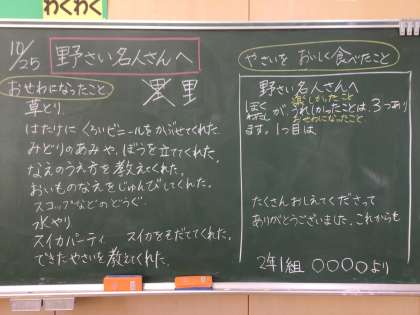 わくわく
10/25
野さい名人さんへ
おせわになったこと
里 里
草とり
はたけに くろいビニールをかぶせてくれた。
みどりのあみや、ぼうを立ててくれた。
なえのうえ方を教えてくれた。
おいものなえをじゅんびしてくれた。
スコップなどのどうぐ
水やり
スイカパーティ スイカをそだててくれた。
できたやさいを教えてくれた。
やさいを おいしく食べたこと
野さい名人さんへ
楽しかったこと
ぼく わたし が うれしかったことは、3つあり
おせわになったこと
ます。1つ目は
たくさんおしえてくださって
ありがとうございました。これからも
2年1組 〇〇〇〇より